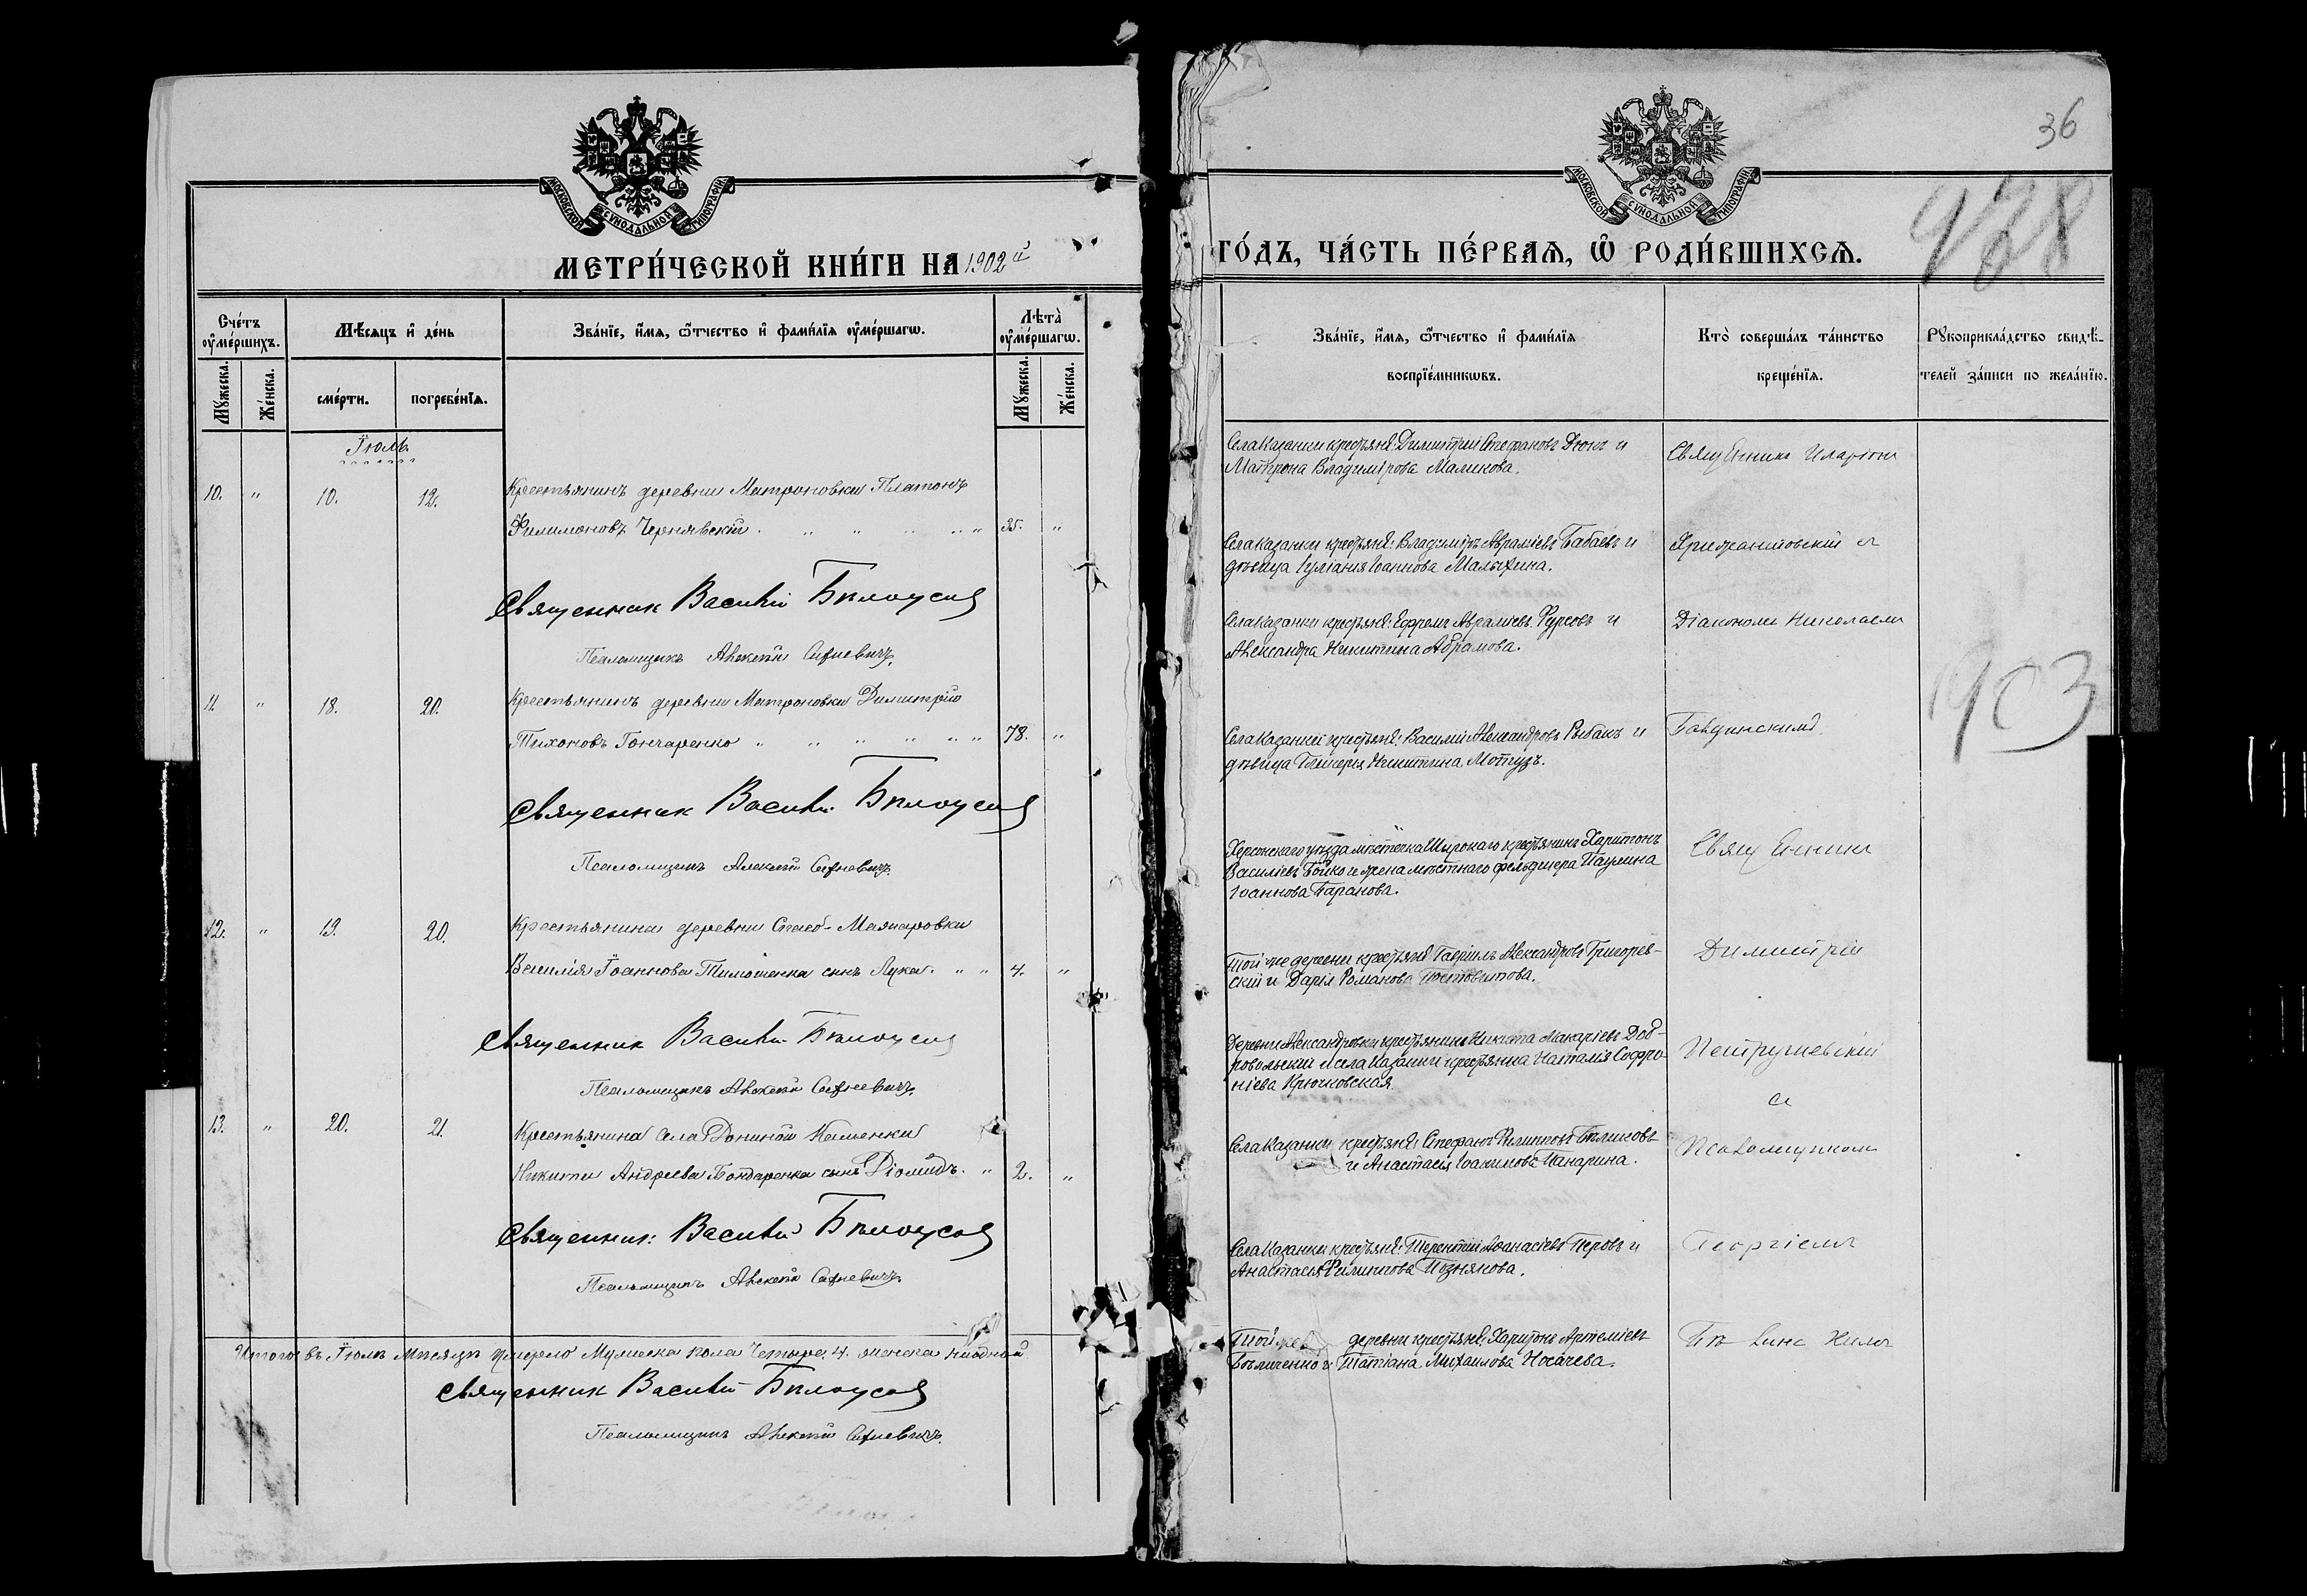 МОСКОВСКОЙ СѴНОДАЛЬНОЙ ТИПОГРАФІИ
МЕТРИ́ЧЕСКОЙ КНИ́ГИ НА 1902 й
Сче́тъ ᲂу҆ме́ршихъ.
Мѣ́сяцъ и҆ де́нь
Зва́нїе, и҆́мѧ, ѻ҆́тчество и҆ фамѝлїѧ ᲂу҆ме́ршагѡ.
Лѣта̀ ᲂу҆ме́ршагѡ.
Мꙋ́жеска.
Же́нска.
сме́рти.
погребе́нїѧ.
Мꙋ́жеска.
Же́нска.
Іюль
10. " 10. 12. Крестьянинъ деревни Матроновки Платонъ
Филимоновъ Чернявскій . " " " " " 35. "
Священник Василий Бѣлоусов
Псаломщикъ Алексѣй
11. " 18. 20. Крестьянинъ деревни Матроновки Димитрій
Тихоновъ Гончаренко " " " " " " 78. "
Священник Василий Бѣлоусов
Псаломщикъ Алексѣй
12. " 19. 20. Крестьянина деревни
Василія Іоаннова Тимошенка сынъ Лука. " " 4. "
Священник Василий Бѣлоусов
Псаломщикъ Алексѣй
13. " 20. 21. Крестьянина села Дониной Каменки
Никиты Андреева Бондаренка сынъ Діомидъ. " 2. "
Священник: Василий Бѣлоусов
Псаломщикъ Алексѣй
Итого въ Іюлѣ мѣсяцѣ умерло Мужеска пола Четыре, 4. женска ниодной
Священник Василий Бѣлоусов
Псаломщикъ Алексѣй
36
МОСКОВСКОЙ СѴНОДАЛЬНОЙ ТИПОГРАФІИ
928
ГО́ДЪ, ЧА́СТЬ ПЕ́РВАѦ, Ѽ РОДИ́ВШИХСѦ.
Зва́нїе, и҆́мѧ, ѻ҆́тчество и҆ фамѝлїѧ
воспрїе́мникѡвъ.
Кто̀ соверша́лъ та́инство
креще́нїѧ.
Рꙋкоприкла́дство свидѣ́-
телей за́писи по жела́нїю.
Села Казанки крестьяне: Димитрій Стефановъ Дюкъ и
Матрона Владимірова Маликова.
Священникъ Иларіонъ
Села Казанки крестьяне: Владиміръ Авраміевъ Бабаевъ и
дѣвица Іуліанія Іоаннова Малыхина.
Хрисанѳовскій съ
Села Казанки крестьяне: Ефремъ Авраміевъ Фурсовъ и
Александра Никитина Абрамова.
Діакономъ Николаемъ
903
Села Казанки крестьяне: Василій Александровъ Рыбакъ и
дѣвица Гликерія Никитина Мотузъ.
Херсонскаго уѣзда мѣстечка Широкаго крестьянинъ Харитонъ
Василіевъ Бойко и жена мѣстнаго фельдшера Паулина
Іоаннова Баранова.
Священникъ
Той же деревни крестьяне Гавріилъ Александровъ Григорев-
скій и Дарія Романова Постовитова.
Димитрій
Деревни Александровки крестьянинъ Никита Макаріевъ Доб-
ровольскій и села Казанки крестьянка Наталія Софро-
ніева Крючковская.
Петрушевскій
съ
Села Казанки крестьяне: Стефанъ Филипповъ Бѣликовъ
и Анастасія Іоакимова Панарина.
Псаломщикомъ
Села Казанки крестьяне: Терентій Аѳанасіевъ Перовъ и
Анастасія Филиппова Познякова.
Георгіемъ
Той же деревни крестьяне: Харитонъ Артеміевъ
Бѣличенко и Татіана Михаилова Носачева.